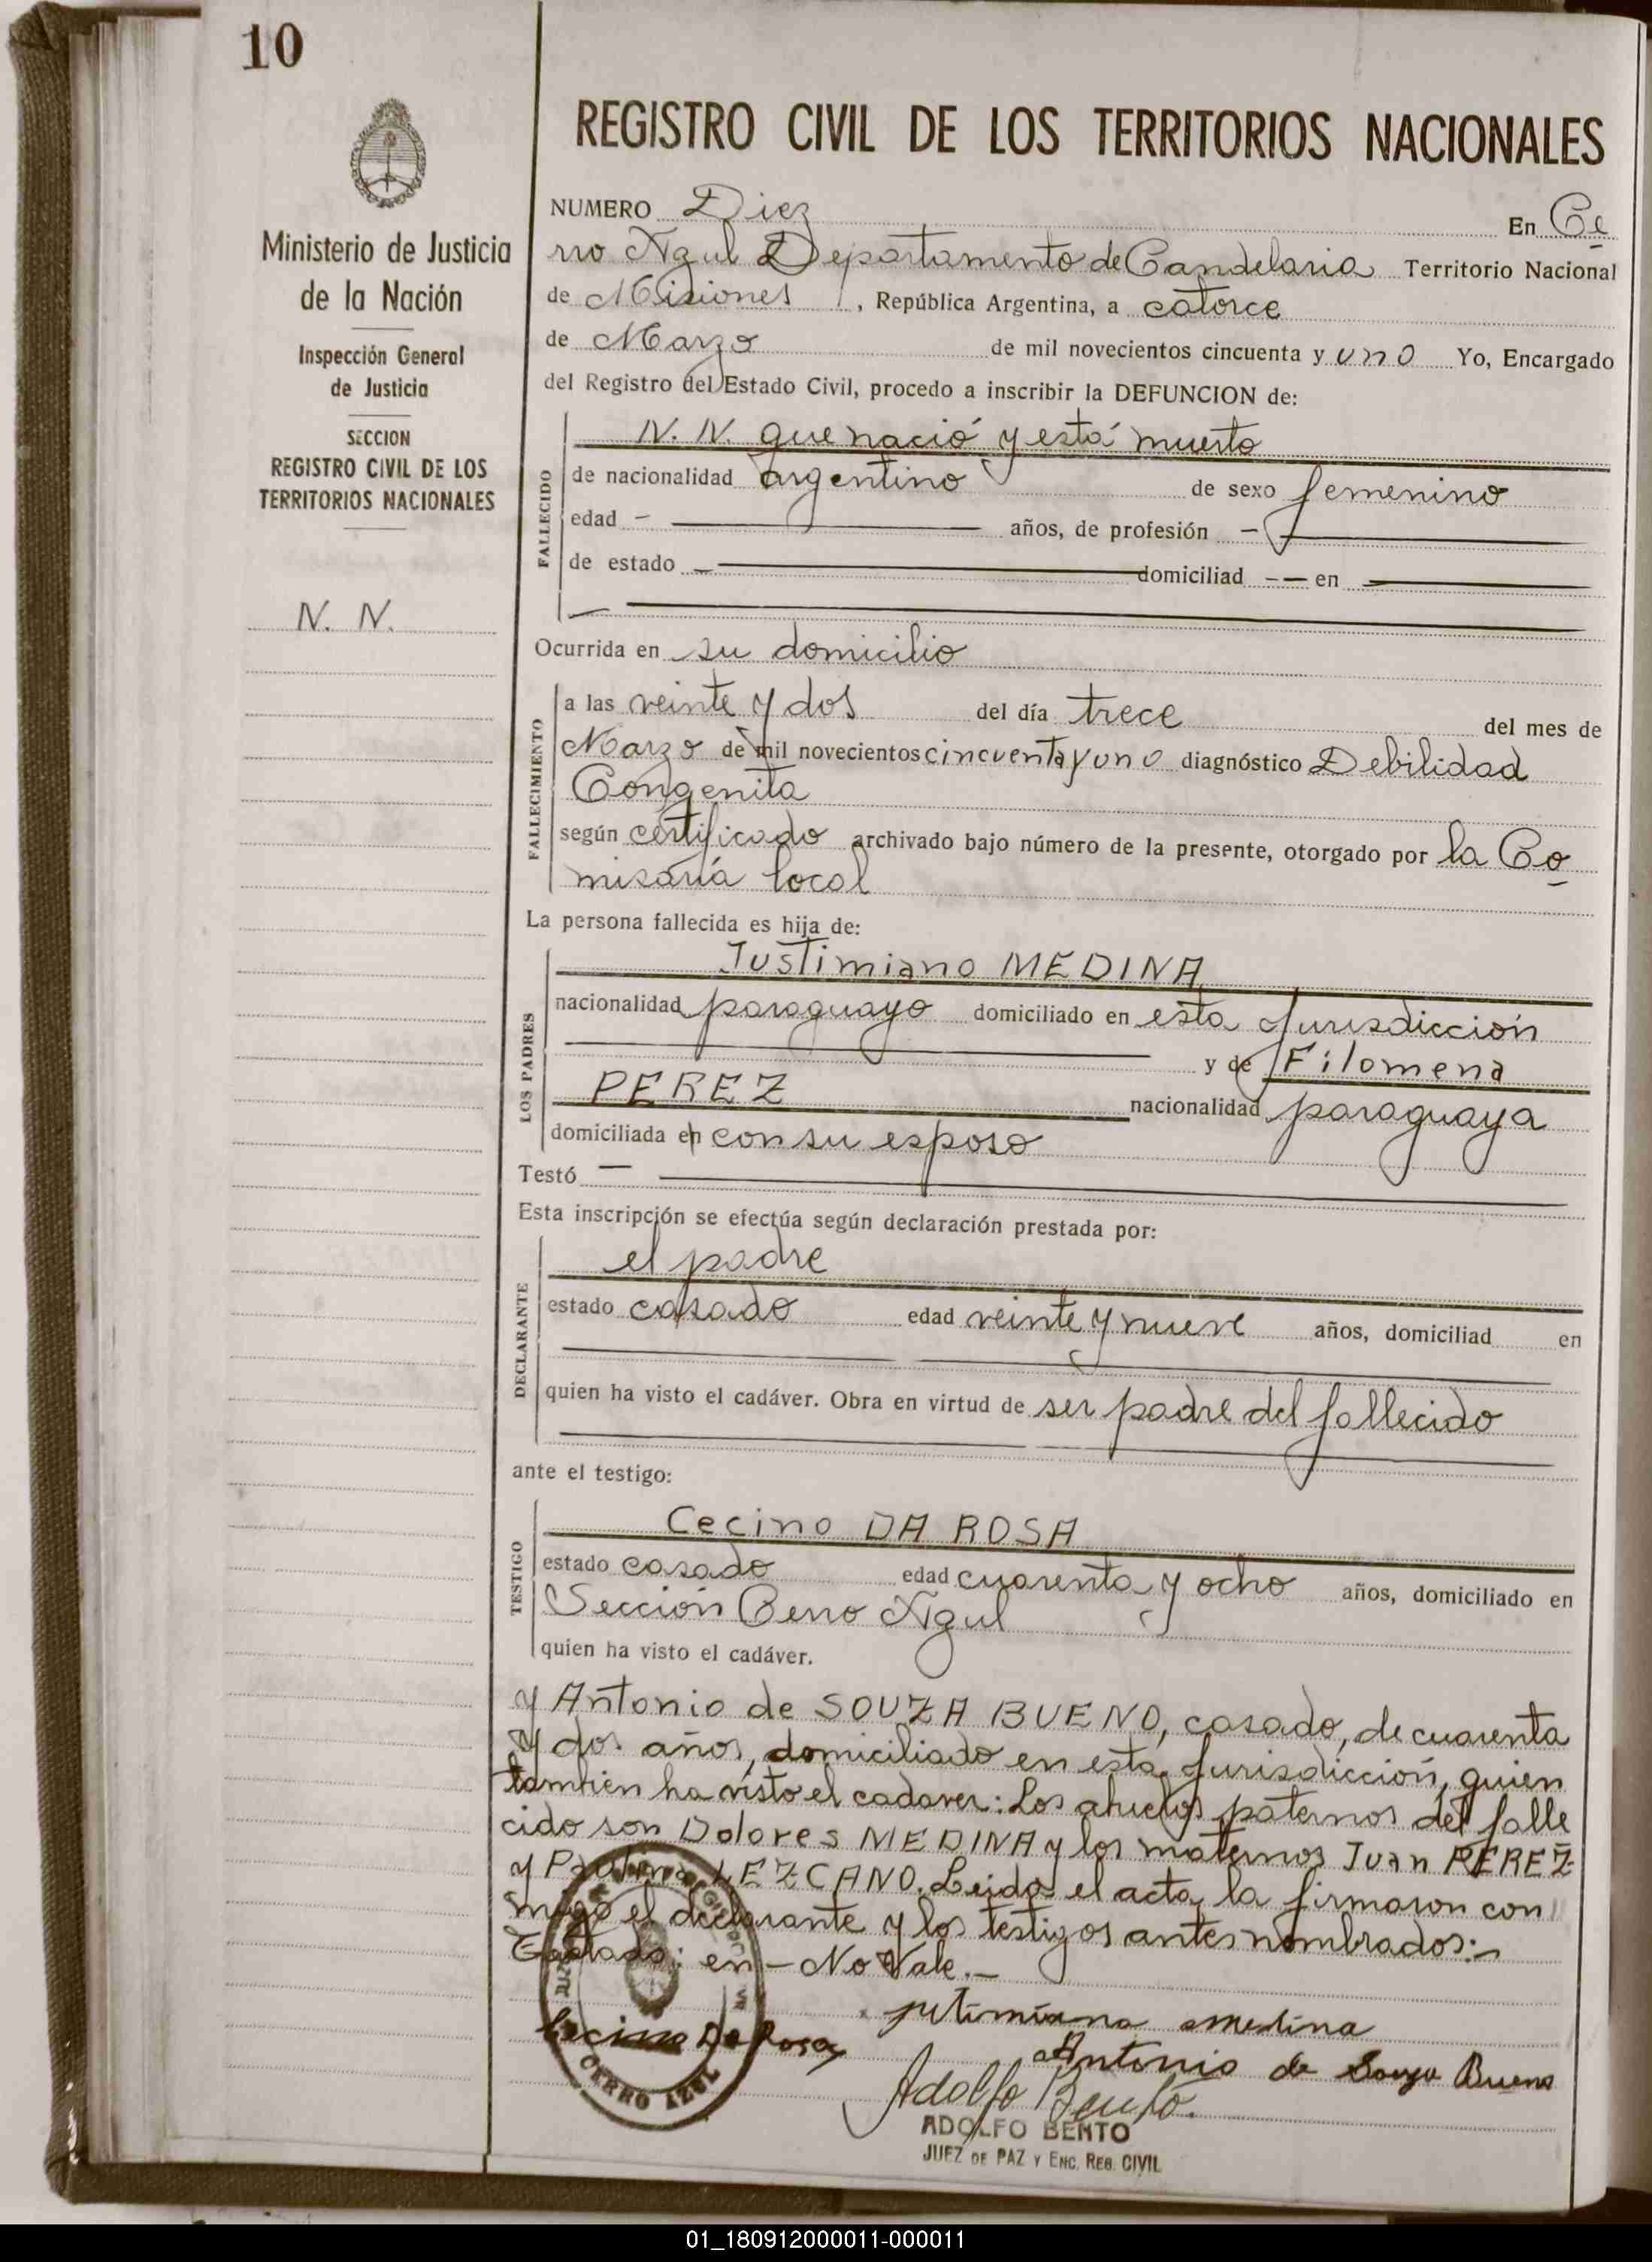 10
Ministerio de Justicia
de la Nación
Inspección General
de Justicia
SECCION
REGISTRO CIVIL DE LOS
TERRITORIOS NACIONALES
N. N.
REGISTRO CIVIL DE LOS TERRITORIOS NACIONALES
NUMERO Diez En Ce
rro Azul Departamento de Candelaria Territorio Nacional
de Misiones, República Argentina, a catorce
de Marzo de mil novecientos cincuenta y uno Yo, Encargado
del Registro del Estado Civil, procedo a inscribir la DEFUNCION de:
FALLECIDO
N. N. que nació y está muerto
de nacionalidad argentino de sexo femenino
edad — años, de profesión —
de estado — domiciliad -- en —
Ocurrida en su domicilio
FALLECIMIENTO
a las veinte y dos del día trece del mes de
Marzo de mil novecientos cincuenta y uno diagnóstico Debilidad
Congenita
según certificado archivado bajo número de la presente, otorgado por la Co
misaría local
La persona fallecida es hija de:
LOS PADRES
Justimiano MEDINA
nacionalidad paraguayo domiciliado en esta Jurisdicción
y de Filomena
PEREZ nacionalidad paraguaya
domiciliada en con su esposo
Testó —
Esta inscripción se efectúa según declaración prestada por:
DECLARANTE
el padre
estado casado edad veinte y nueve años, domiciliad en
quien ha visto el cadáver. Obra en virtud de ser padre del fallecido
ante el testigo:
TESTIGO
Cecino DA ROSA
estado casado edad cuarenta y ocho años, domiciliado en
Sección Cerro Azul
quien ha visto el cadáver.
y Antonio de SOUZA BUENO, casado, de cuarenta
y dos años, domiciliado en esta Jurisdicción, quien
tambien ha visto el cadaver: Los abuelos paternos del falle
cido son Dolores MEDINA y los maternos Juan PEREZ
y Paulina LEZCANO. Leida el acta, la firmaron con
migo el declarante y los testigos antes nombrados:-
Testado: en - No Vale.-
jutimiana medina
Cecino Da Rosa
Antonio de Souza Bueno
Adolfo Bento
CERRO AZUL
ADOLFO BENTO
JUEZ DE PAZ Y ENC. REG. CIVIL
01_180912000011-000011